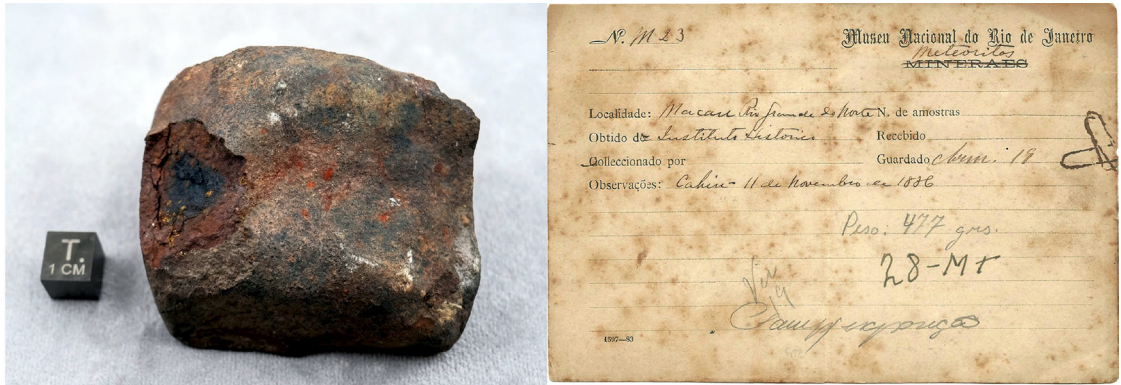 T.
1 CM
N. M 23
Museu Nacional do Rio de Janeiro
Meteoritos
MINERAES
Localidade: Macau Rio Grande do Norte N. de amostras
Obtido de Instituto Historico Recebido
Colleccionado por Guardado 19
Observações: Cahiu 11 de Novembro de 1836
Peso: 477 grs.
28-Mt
1597—83